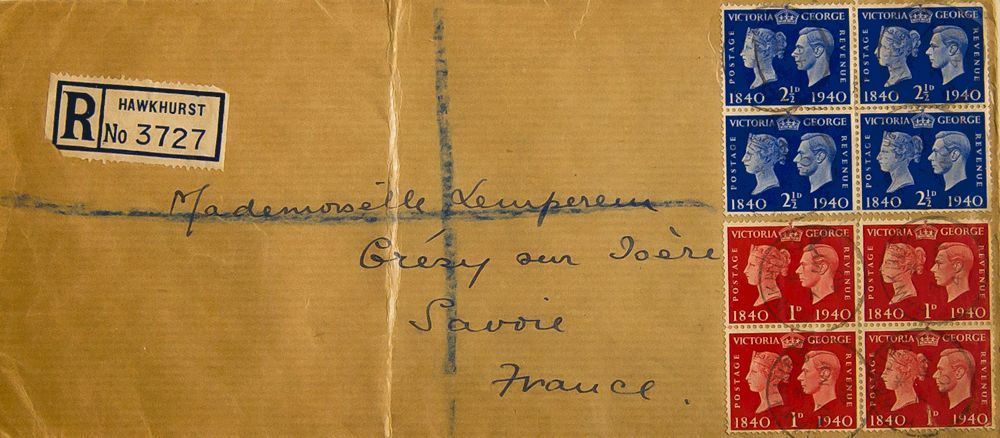 R HAWKHURST
No 3727
Mademoiselle Lemperem
Grésy sur Isère
Savoie
France.
VICTORIA GEORGE
POSTAGE REVENUE
1840 2½D 1940
VICTORIA GEORGE
POSTAGE REVENUE
1840 2½D 1940
VICTORIA GEORGE
POSTAGE REVENUE
1840 2½D 1940
VICTORIA GEORGE
POSTAGE REVENUE
1840 2½D 1940
VICTORIA GEORGE
POSTAGE REVENUE
1840 1D 1940
VICTORIA GEORGE
POSTAGE REVENUE
1840 1D 1940
VICTORIA GEORGE
POSTAGE REVENUE
1840 1D 1940
VICTORIA GEORGE
POSTAGE REVENUE
1840 1D 1940